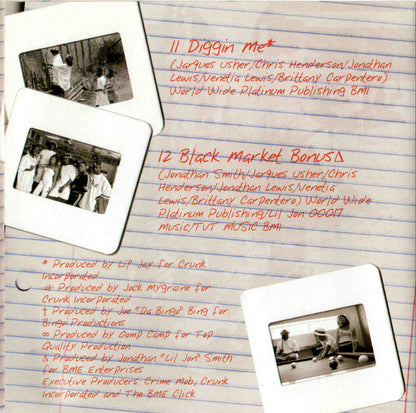 11 Diggin Me*
(Jarques Usher/Chris Henderson/Jonathan
Lewis/Venetia Lewis/Brittany Carpentero)
World Wide Platinum Publishing BMI
12 Black Market Bonus∆
(Jonathan Smith/Jarques Usher/Chris
Henderson/Jonathan Lewis/Venetia
Lewis/Brittany Carpentero) World Wide
Platinum Publishing/Lil Jon 00017
Music/TVT MUSIC BMI
* Produced by Lil' Jay for Crunk
Incorporated
# Produced by Jock Mygrane for
Crunk Incorporated
† Produced by Joe "Da Bingo" Bing for
Bingo Productions
∞ Produced by Oomp Camp for Top
Quality Production
∆ Produced by Jonathan "Lil Jon" Smith
for BME Enterprises
Executive Producers Crime Mob, Crunk
Incorporated and The BME Click